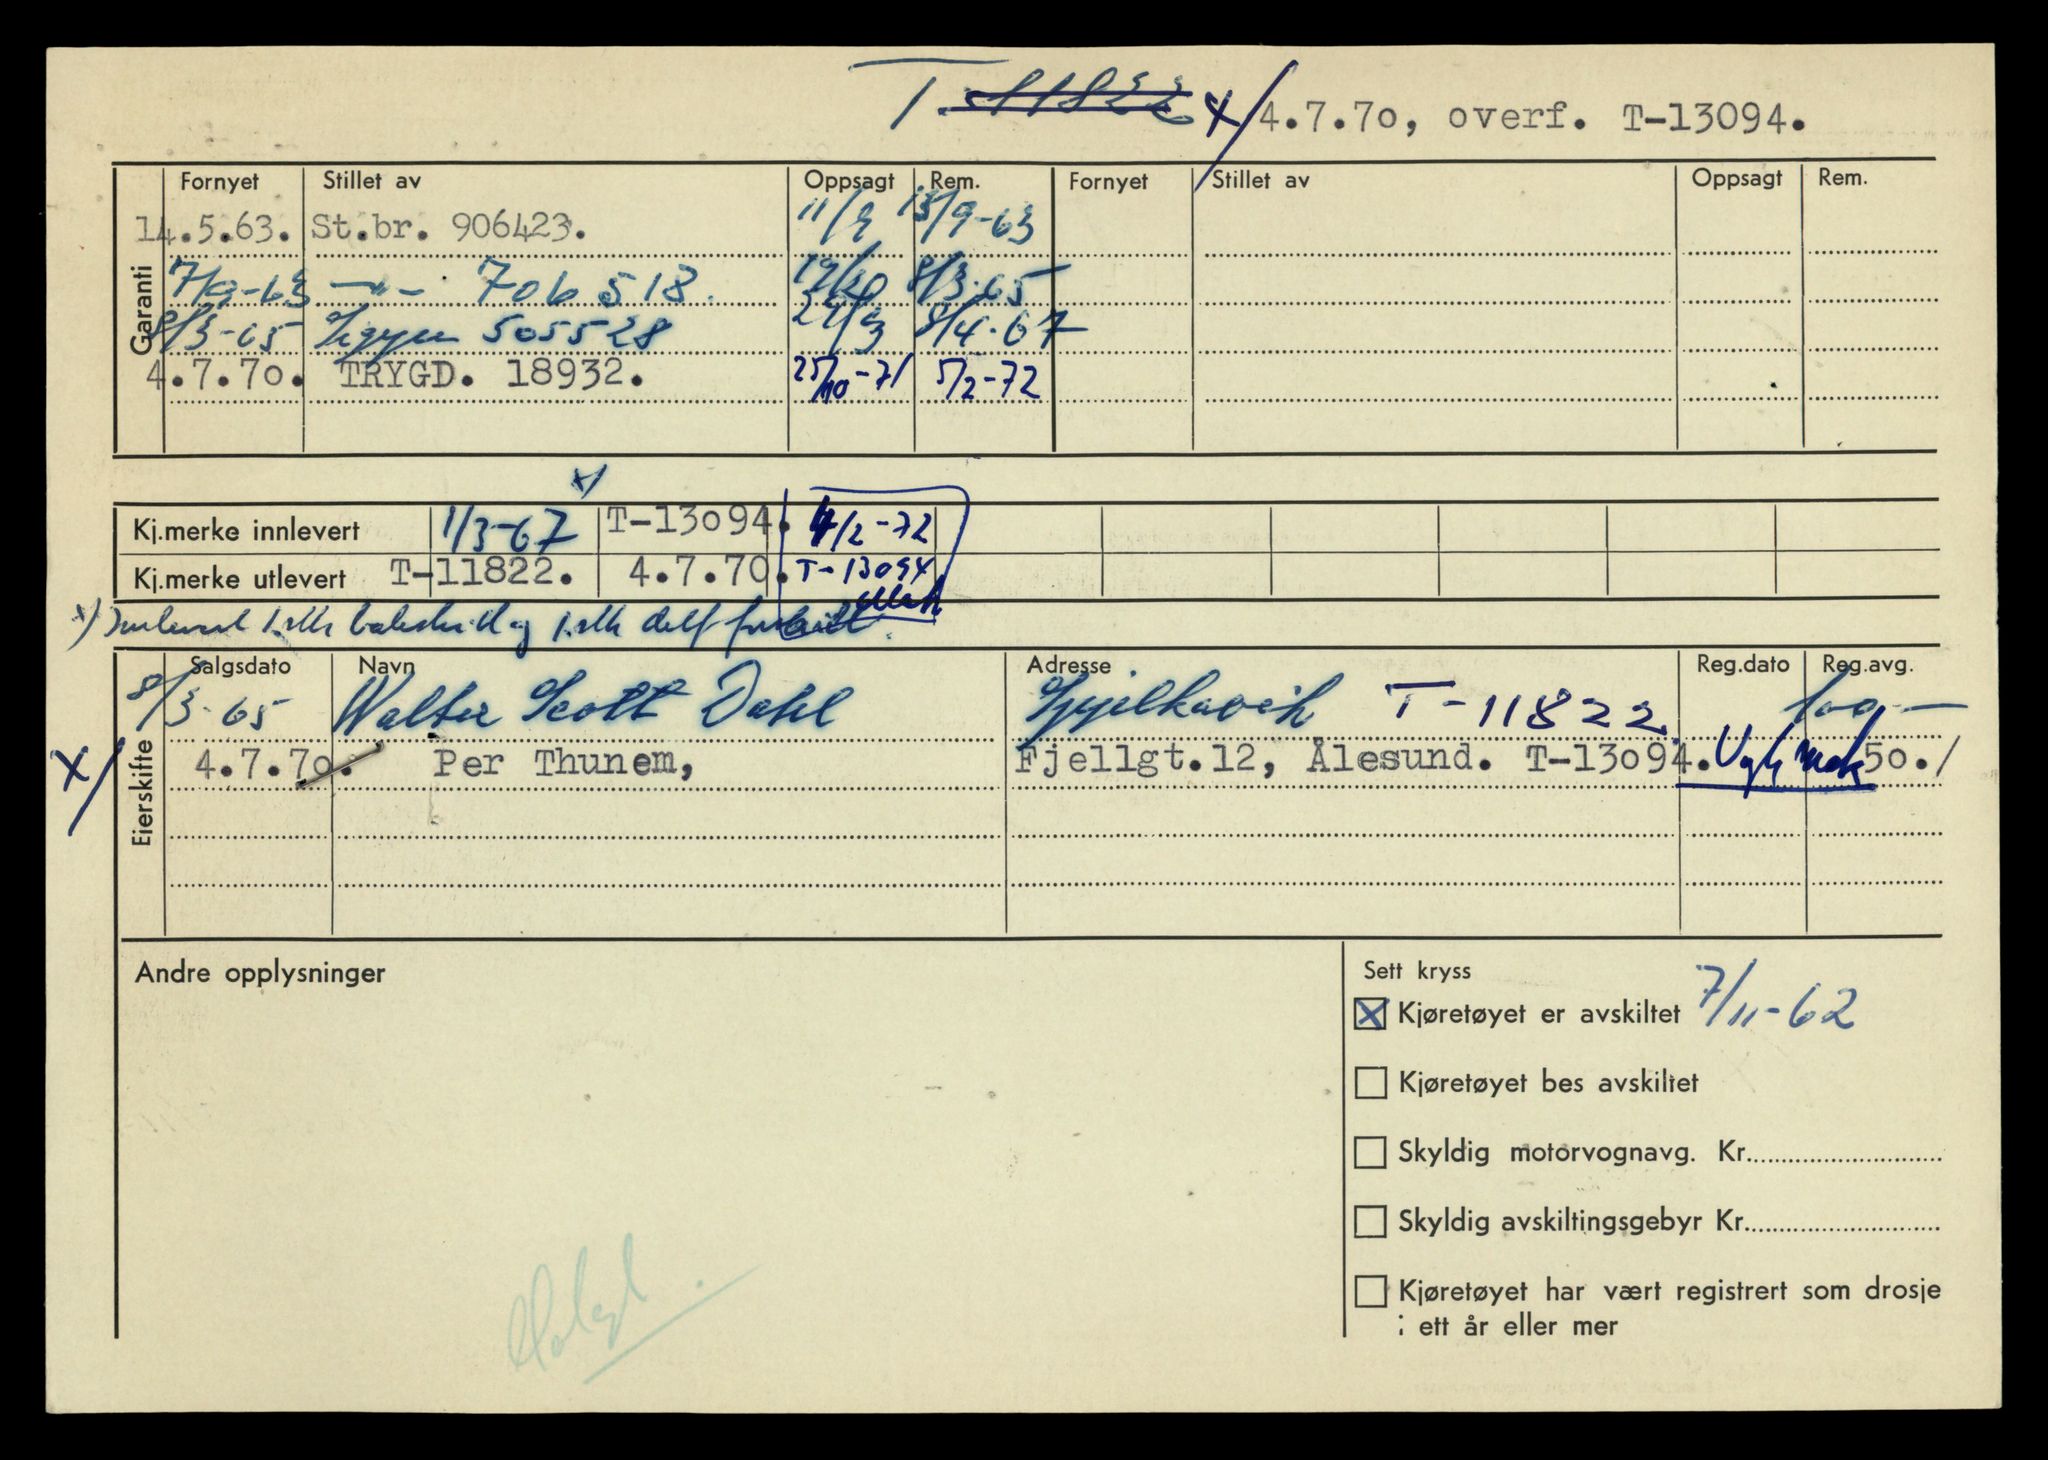 T-11822 x/ 4.7.70, overf. T-13094.
Garanti
Fornyet Stillet av Oppsagt Rem. Fornyet Stillet av Oppsagt Rem.
14.5.63. St.br. 906423. 11/9 13/9-63
7/9-63 —"— 706518. 8/3-65
8/3-65 Sigyn 505528 8/4-67
4.7.70. TRYGD. 18932. 25/10-71 5/2-72
x)
Kj.merke innlevert 1/3-67 T-13094. 4/2-72
Kj.merke utlevert T-11822. 4.7.70. T-13094
x) Innlevert 1 stk
Eierskifte
Salgsdato Navn Adresse Reg.dato Reg.avg.
8/3-65 Walter Scott Dahl T-11822 100.-
x/ 4.7.70. Per Thunem, Fjellgt.12, Ålesund. T-13094. 50./
Andre opplysninger
Sett kryss
Kjøretøyet er avskiltet 7/11-62
Kjøretøyet bes avskiltet
Skyldig motorvognavg. Kr.
Skyldig avskiltingsgebyr Kr.
Kjøretøyet har vært registrert som drosje
i ett år eller mer